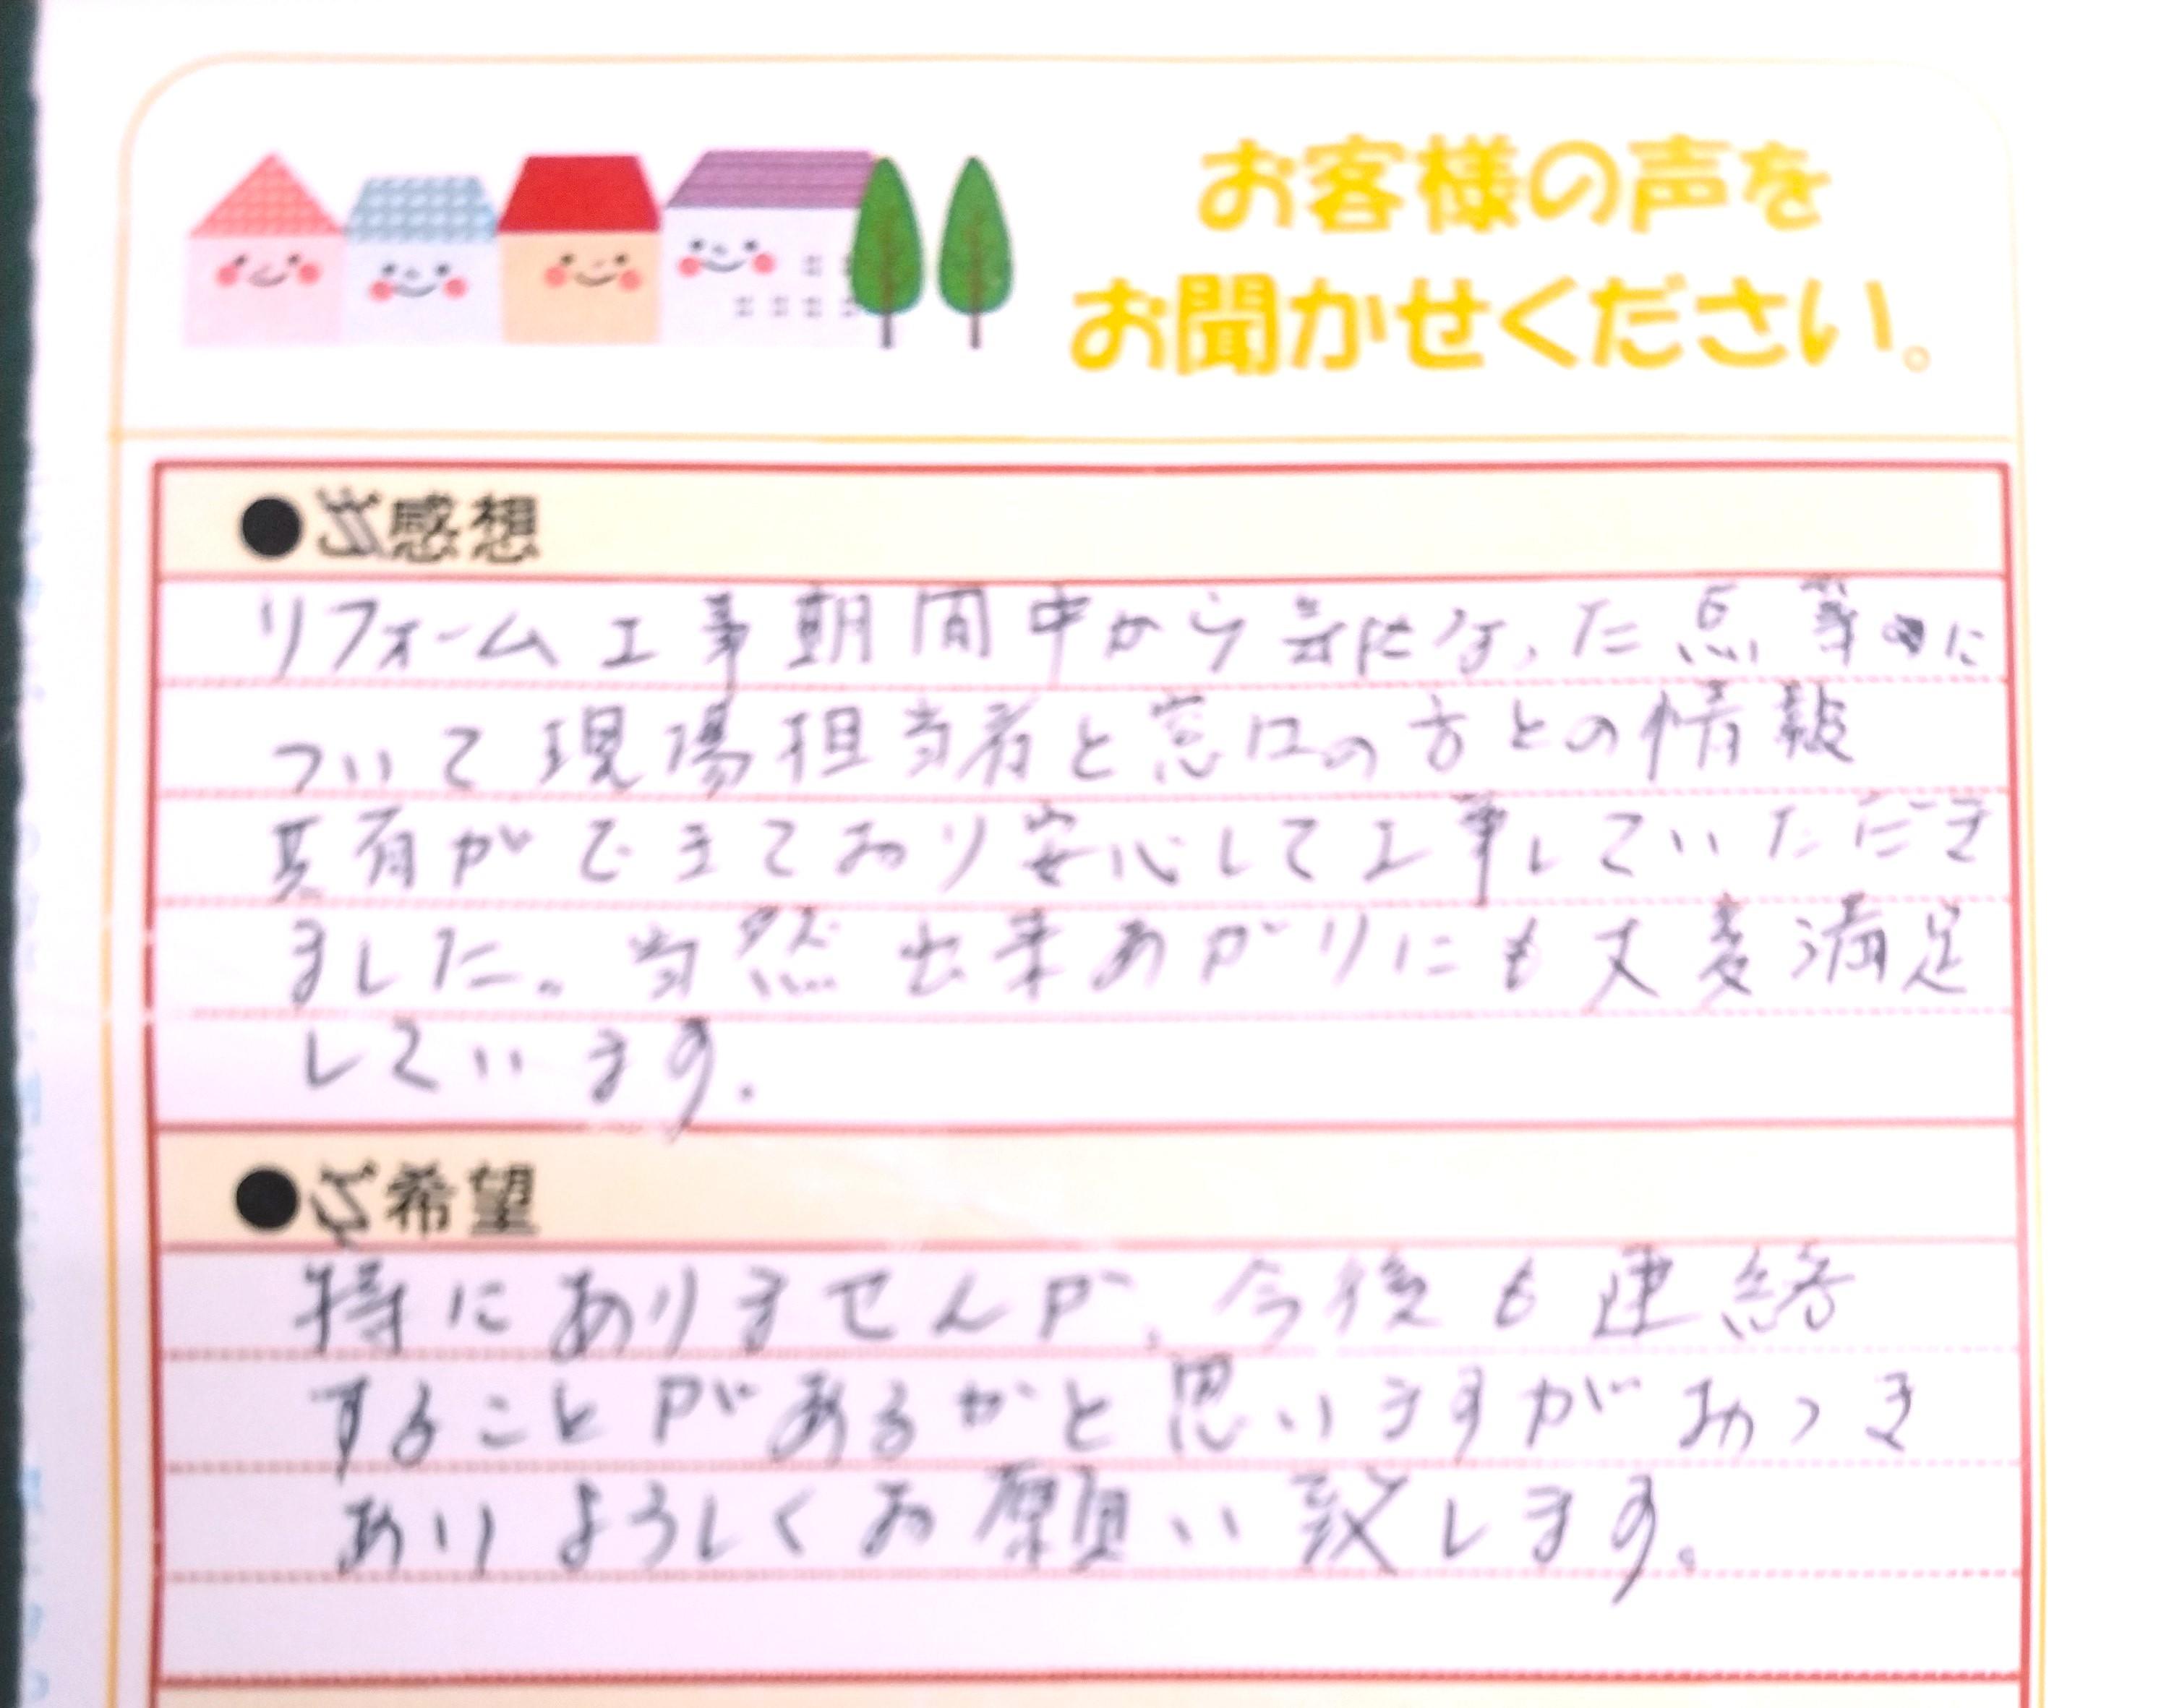 お客様の声を
お聞かせください。
●ご感想
リフォーム工事期間中から気になった点等に
ついて現場担当者と窓口の方との情報
共有ができており安心して工事していただき
ました。当然出来あがりにも大変満足
しています.
●ご希望
特にありませんが、今後も連絡
することがあるかと思いますがおつき
あいよろしくお願い致します。